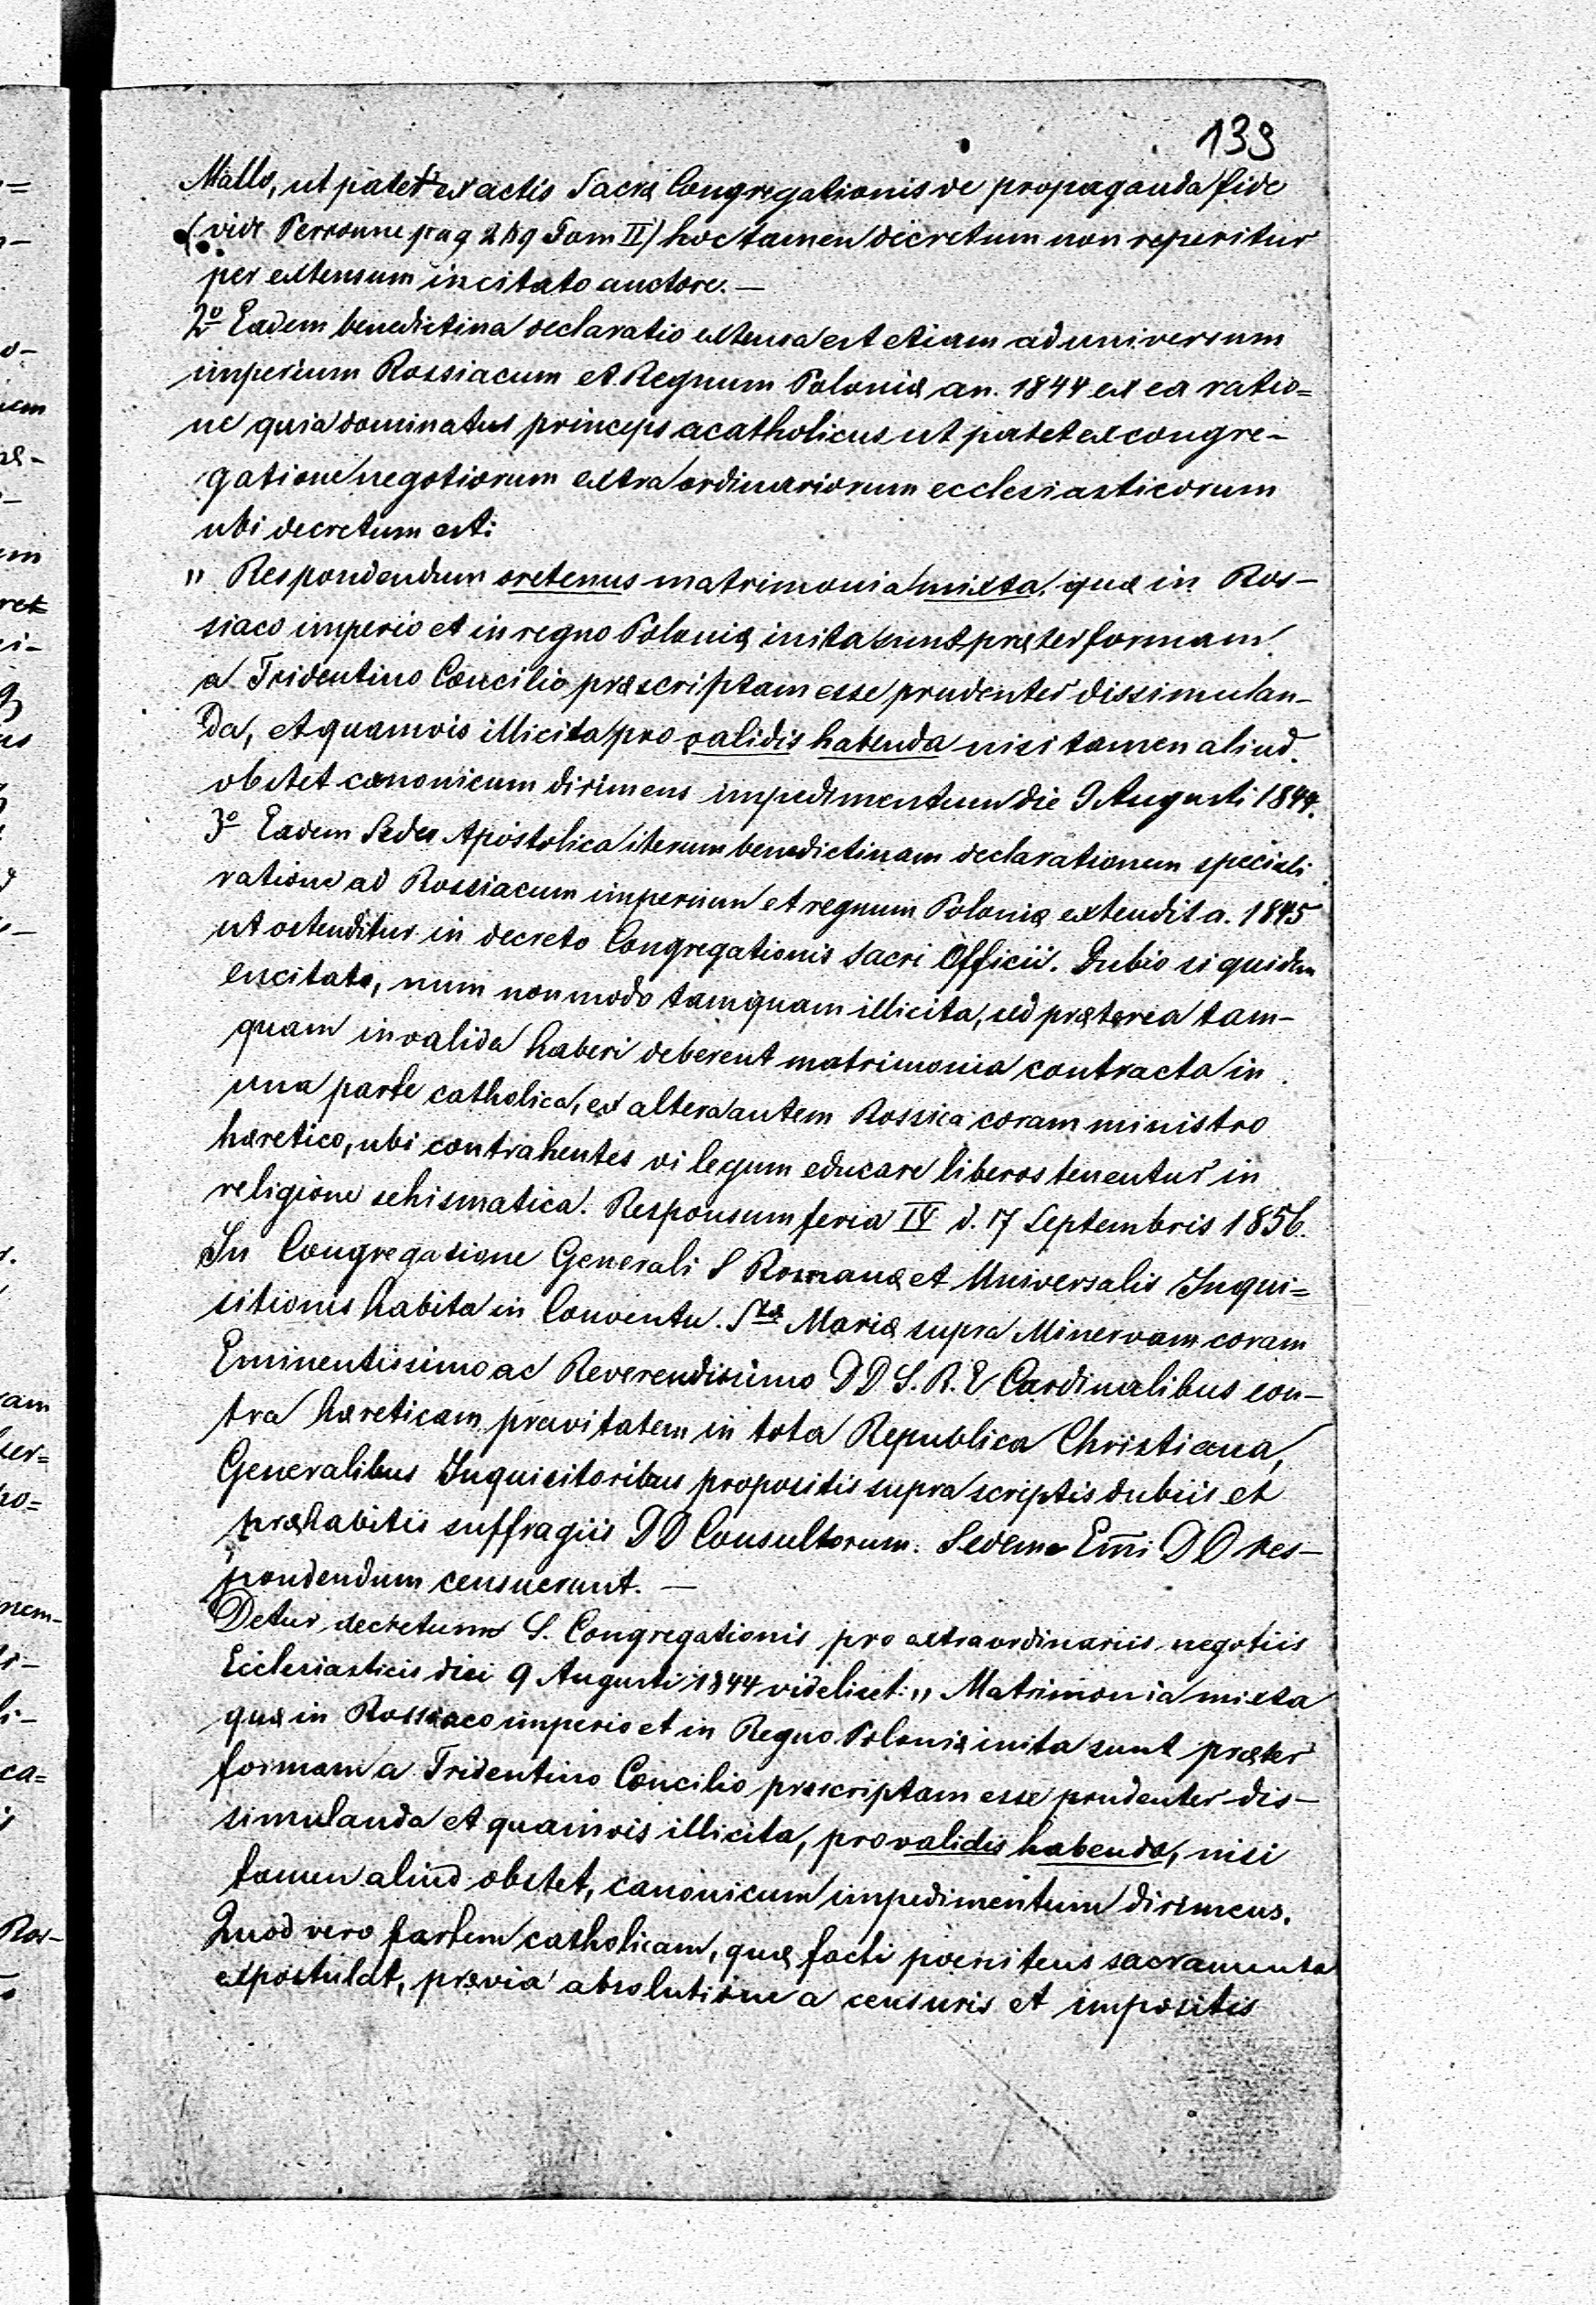 139
Mallo, ut patet ex actis Sacræ Congregationis de propaganda fide
(vide Perronne pag 249 Tom II) hoc tamen decretum non reperitur
per extensum in citato auctore. —
2º Eadem benedictina declaratio extensa est etiam ad universum
imperium Rossiacum et Regnum Poloniæ an. 1844 ex ea ratio=
ne quia dominatus princeps acatholicus ut patet ex congre-
gatione negotiorum extraordinariorum ecclesiasticorum
ubi decretum est:
„ Respondendum oretenus matrimonia mixta, quæ in Ros-
siaco imperio et in regno Poloniæ inita sunt præter formam
a Tridentino Concilio præscriptam esse prudenter dissimulan-
da, et quamvis illicita pro validis habenda nisi tamen aliud
obstet canonicum dirimens impedimentum die 9 Augusti 1844.
3º Eadem Sedes Apostolica iterum benedictinam declarationem speciali
ratione ad Rossiacum imperium et regnum Poloniæ extendit a. 1845
ut ostenditur in decreto Congregationis Sacri Officii. Dubio siquidem
encitato, num non modo tamquam illicita, sed præterea tam-
quam invalida haberi deberent matrimonia contracta in
una parte catholica, ex altera autem Rossica coram ministro
hæretico, ubi contrahentes vi legum educare liberos tenentur in
religione schismatica. Responsum feria IV d. 17 Septembris 1856.
In Congregatione Generali S Romanæ et Universalis Inqui=
sitionis habita in Conventu Stæ Mariæ supra Minervam coram
Eminentissimo ac Reverendissimo DD S. R. E Cardinalibus con-
tra hæreticam pravitatem in tota Republica Christiana,
Generalibus Inquisitoribus propositis supra scriptis dubiis et
præhabitis suffragiis DD Consultorum. Sedem Emi DD res-
pondendum censuerunt. —
Detur decretum S. Congregationis pro extraordinariis negotiis
Ecclesiasticis diei 9 Augusti 1844 videlicet: „ Matrimonia mixta
quæ in Rossiaco imperio et in Regno Poloniæ inita sunt præter
formam a Tridentino Concilio præscriptam esse prudenter dis-
simulanda et quamvis illicita, pro validis habenda, nisi
tamen aliud obstet, canonicum impedimentum dirimens.
Quod vero partem catholicam, quæ facti poenitens sacramenta
expostulat, prævia absolutione a censuris et impositis